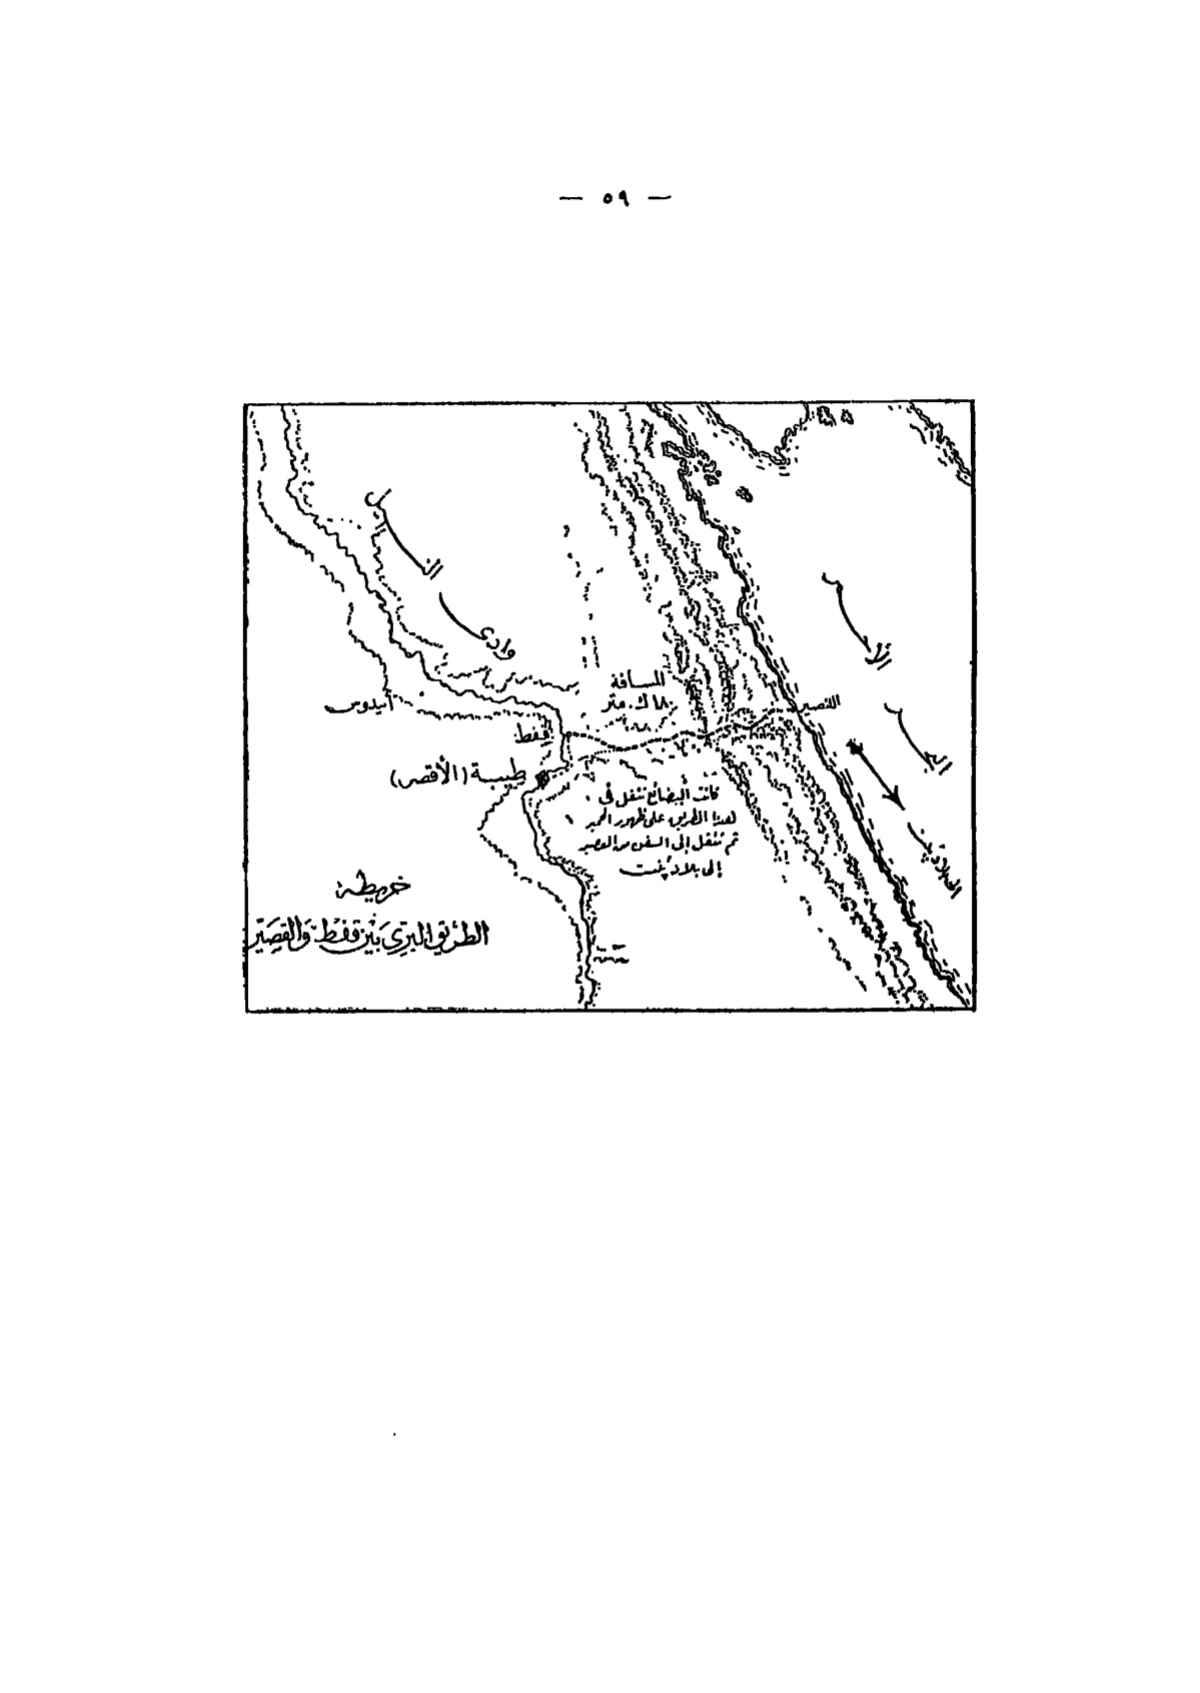 — ٥٩ —
وادي
القصير
المسافة
ك. متر
أبيدوس
قفط
طيبة (الأقصر)
كانت البضائع تنقل في
هذا الطريق على ظهور الحمير
ثم تنقل إلى السفن من القصير
إلى بلاد پنت
خريطة
الطريق البري بين قفط والقصير